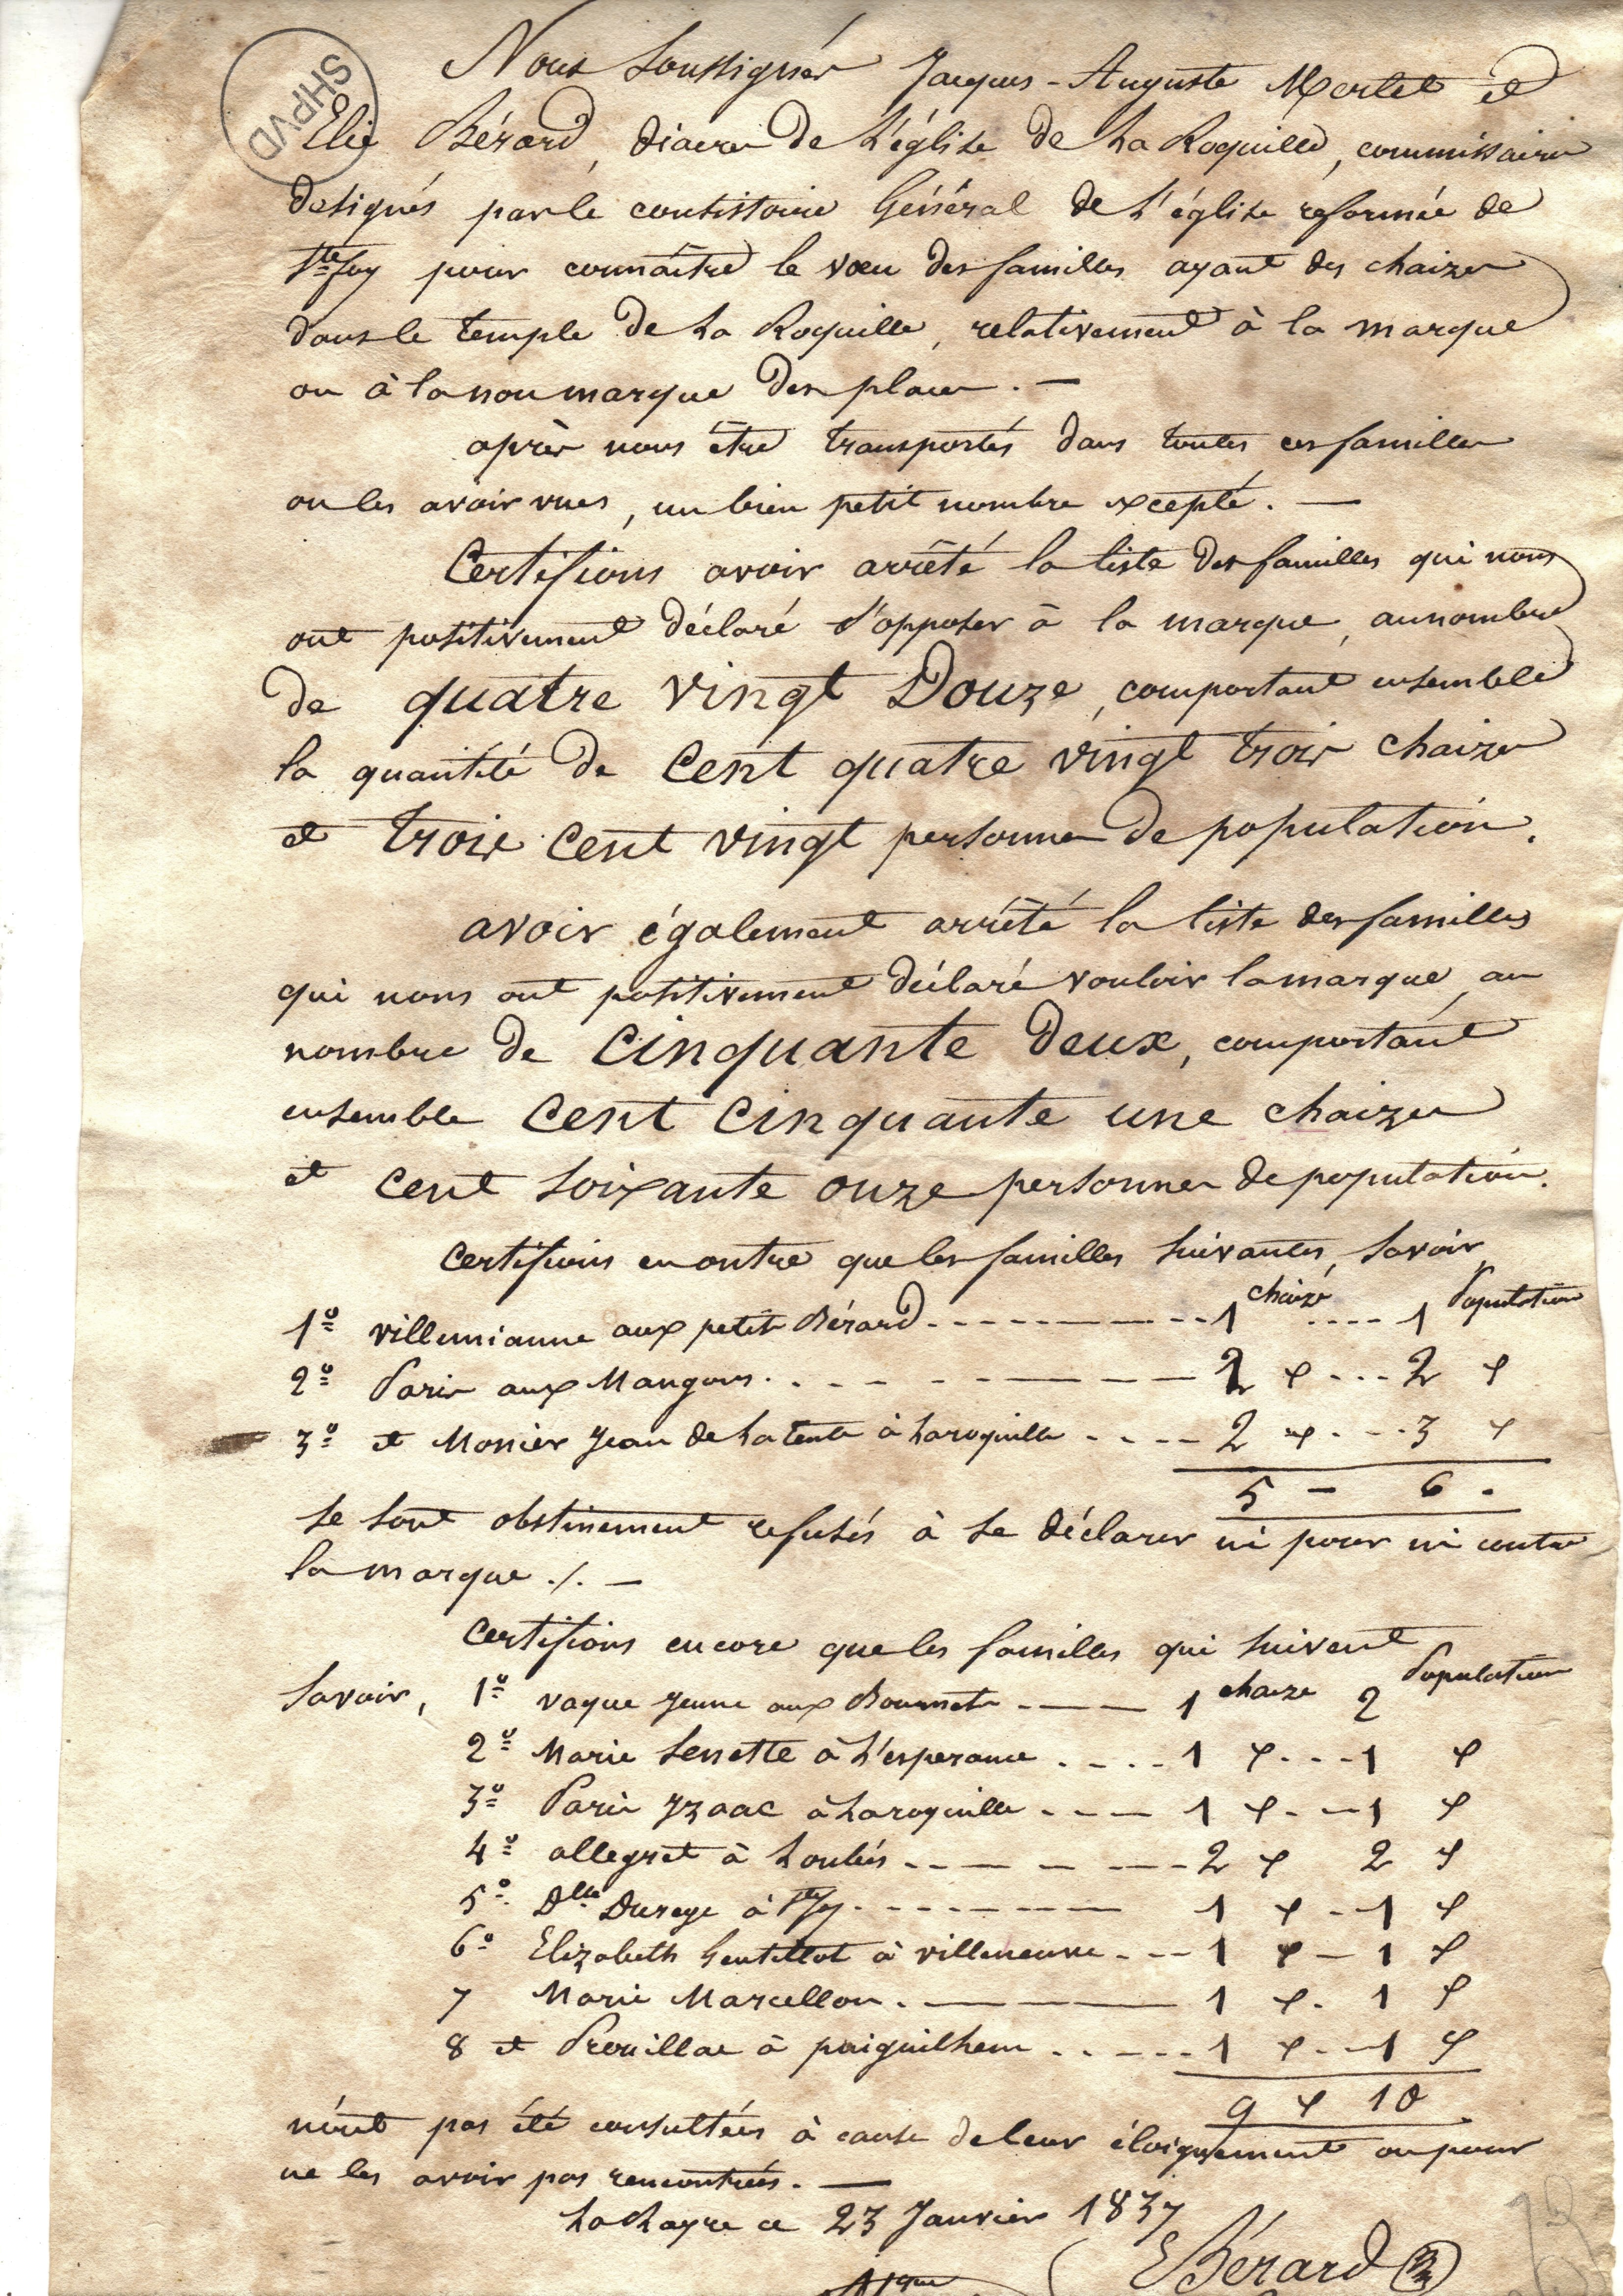 SHPVD
Nous soussignés Jacques-Auguste Merlet et
Elie Bérard, diacres de l'église de La Roquille, commissaires
designés par le consistoire Général de l'église reformée de
Ste foy pour connaître le voeu des familles ayant des chaizes
dans le temple de La Roquille, relativement à la marque
ou à la non marque des places. —
après nous être transportés dans toutes ces familles
ou les avoir vues, un bien petit nombre excepté. —
Certifions avoir arrêté la liste des familles qui nous
ont positivement déclaré s'opposer à la marque, au nombre
de quatre vingt Douze, comportant ensemble
la quantité de Cent quatre vingt trois chaizes
et trois Cent vingt personnes de population.
avoir également arrêté la liste des familles
qui nous ont positivement déclaré vouloir la marque, au
nombre de Cinquante Deux, comportant
ensemble Cent Cinquante une chaizes
et Cent soixante onze personnes de population.
Certifions en outre que les familles suivantes, savoir
chaize Population
1º villemianne aux petits Bérard - - - - 1 .... 1
2º Paris aux Mangons. - - - - 2 " ... 2 "
3º et Monier Jean de La tente à Laroquille .... 2 " ... 3 "
5 — 6 .
se sont obstinement refusés à se déclarer ni pour ni contre
la marque ./. —
Certifions encore que les familles qui suivent
savoir, 1º vaque jeune aux Bournets — 1 chaize 2 Population
2º Marie Senette à L'esperance .... 1 " ... 1 "
3º Paris Izaac à Laroquille - - - 1 " - - 1 "
4º allegret à Loubés - - - - 2 " 2 "
5º Dlle Durege à Ste foy. - - - - 1 " - 1 "
6º Elizabeth Gentillot à villeneuve - - - 1 " — 1 "
7 Marie Marcellon. — 1 " . 1 "
8 et Prouillac à puiguilhem ..... 1 " . — 1 "
9 " 10
n'ont pas été consultées à cause de leur éloignement ou pour
ne les avoir pas rencontrées. —
ce 23 Janvier 1837
EBérard